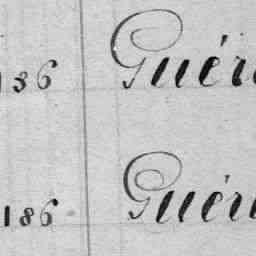 136 Guér
186 Guér